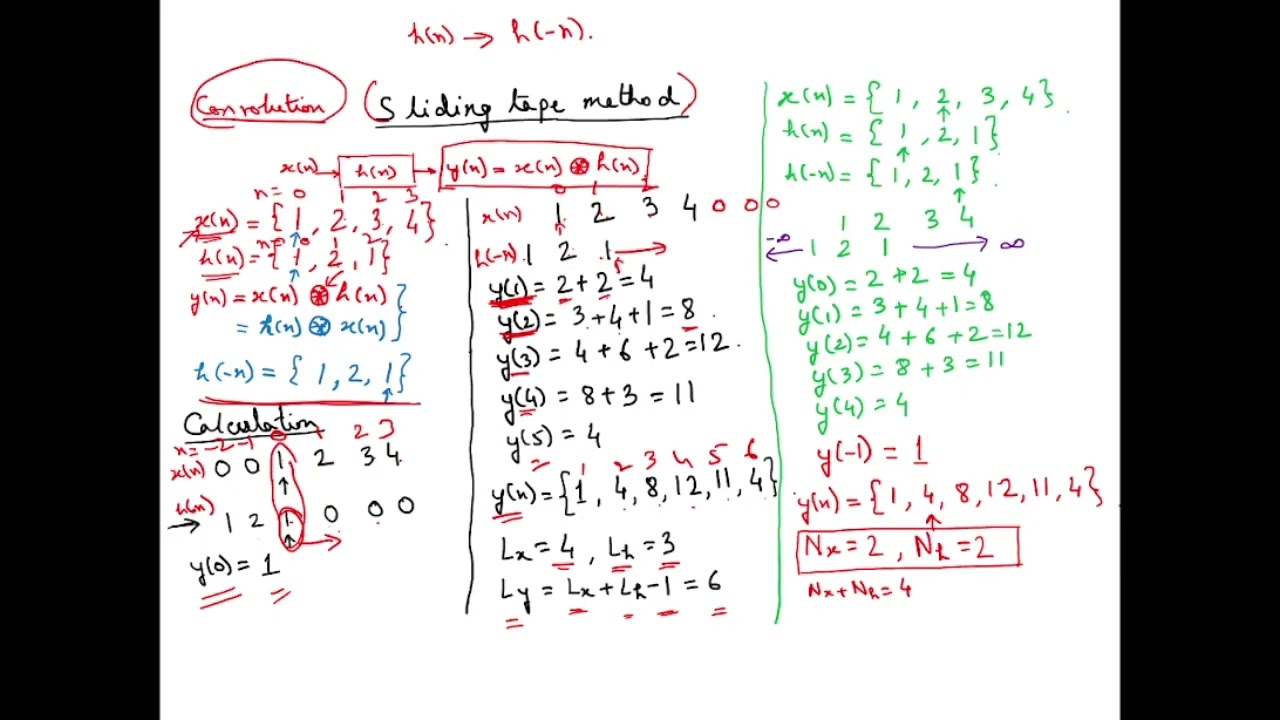 h(n) → h(-n).
Convolution (Sliding tape method)
x(n) → h(n) → y(n) = x(n) ⊛ h(n)
n = 0 1 2 3
x(n) = { 1, 2, 3, 4}.
n=0 0 1 2
h(n) = { 1, 2, 1}
↑
y(n) = x(n) ⊛ h(n) }
= h(n) ⊛ x(n) }
h(-n) = { 1, 2, 1}
↑
Calculation
n = -2 -1 0 1 2 3
x(n) 0 0 1 2 3 4
↑
h(n)
→ 1 2 1 0 0 0
↑ →
y(0) = 1
0 1 2
x(n) 1 2 3 4 0 0 0
↑
h(-n) 1 2 1 →
↑
y(1) = 2 + 2 = 4
y(2) = 3 + 4 + 1 = 8.
y(3) = 4 + 6 + 2 = 12.
y(4) = 8 + 3 = 11
y(5) = 4
1 2 3 4 5 6
y(n) = {1, 4, 8, 12, 11, 4}
Lx = 4, Lh = 3
Ly = Lx + Lh - 1 = 6
x(n) = { 1, 2, 3, 4}.
↑
h(n) = { 1, 2, 1}
↑
h(-n) = { 1, 2, 1}.
↑
1 2 3 4
-∞ ← 1 2 1 → ∞
y(0) = 2 + 2 = 4
y(1) = 3 + 4 + 1 = 8
y(2) = 4 + 6 + 2 = 12
y(3) = 8 + 3 = 11
y(4) = 4
y(-1) = 1
y(n) = {1, 4, 8, 12, 11, 4}
↑
Nx = 2, Nh = 2
Nx + Nh = 4